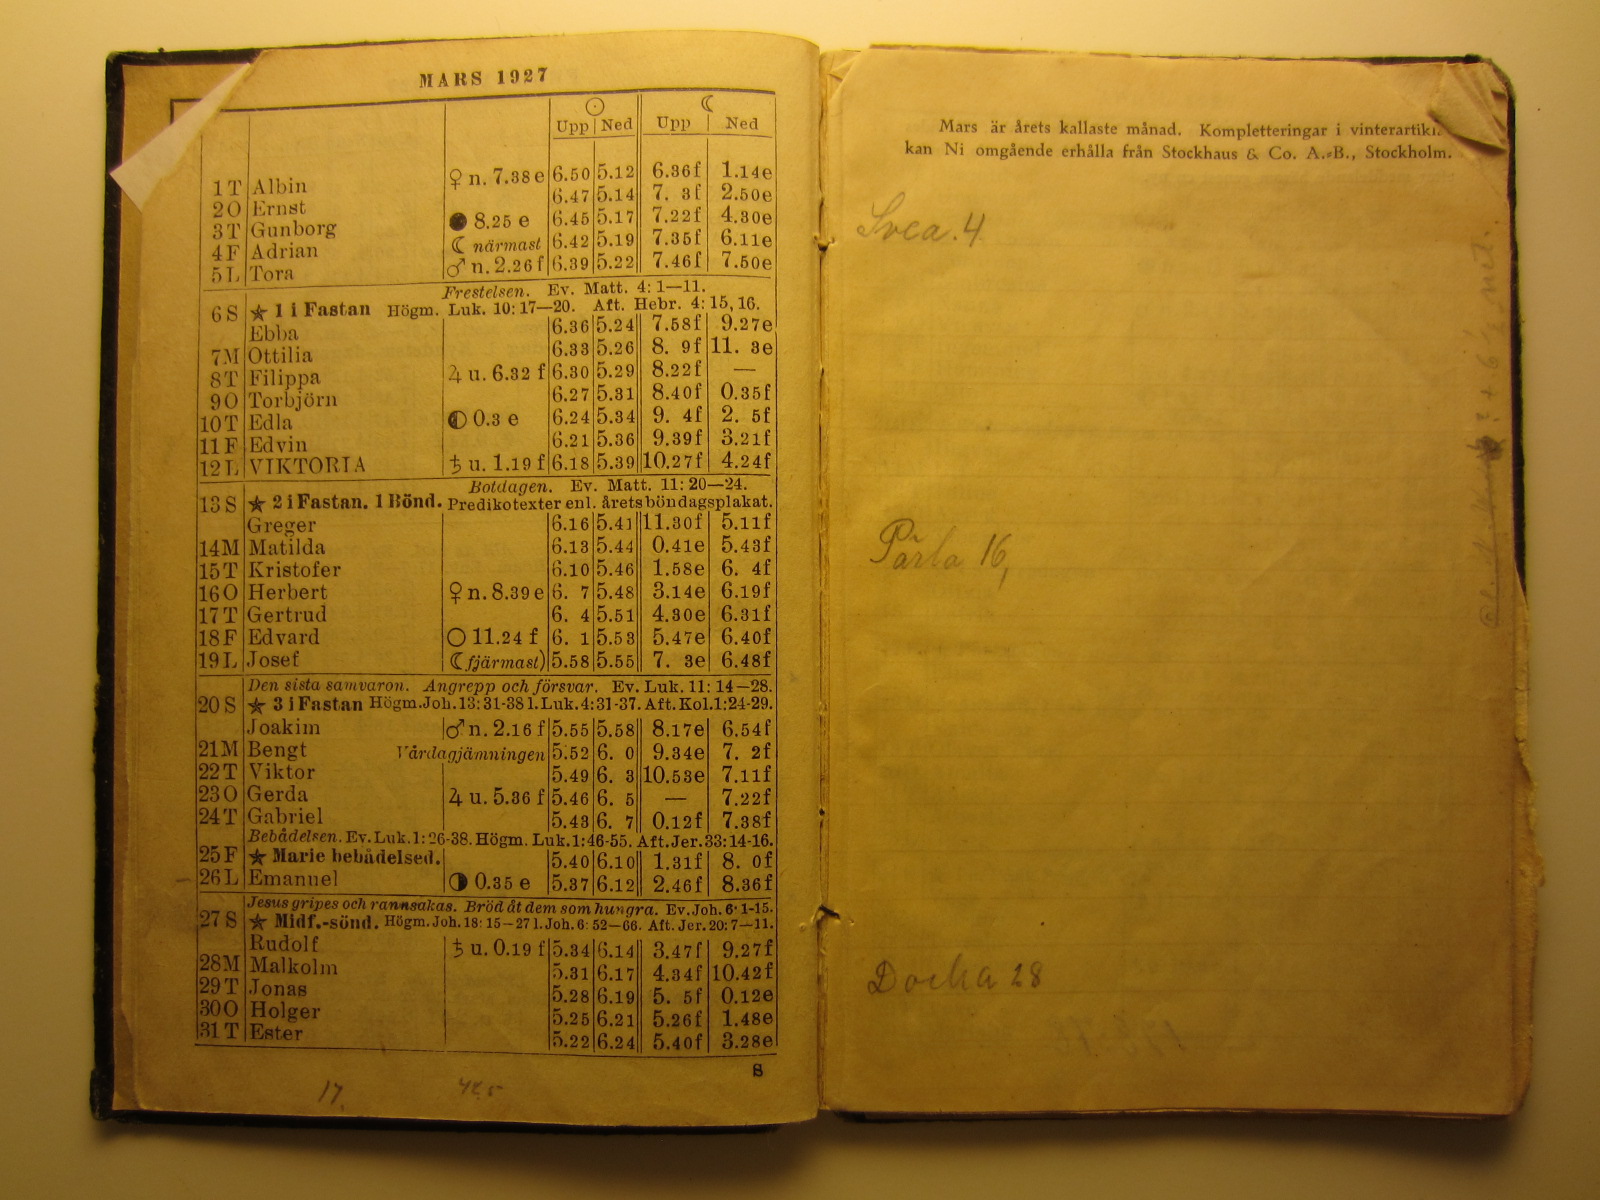 MARS 1927
☉ ☾
Upp Ned Upp Ned
1 T Albin ♀ n. 7.38 e 6.50 5.12 6.36f 1.14e
2 O Ernst 6.47 5.14 7. 3f 2.50e
3 T Gunborg ● 8.25 e 6.45 5.17 7.22f 4.30e
4 F Adrian ☾ närmast 6.42 5.19 7.35f 6.11e
5 L Tora ♂ n. 2.26 f 6.39 5.22 7.46f 7.50e
Frestelsen. Ev. Matt. 4: 1—11.
6 S ★ 1 i Fastan Högm. Luk. 10: 17—20. Aft. Hebr. 4: 15, 16.
Ebba 6.36 5.24 7.58f 9.27e
7 M Ottilia 6.33 5.26 8. 9f 11. 3e
8 T Filippa ♃ u. 6.32 f 6.30 5.29 8.22f —
9 O Torbjörn 6.27 5.31 8.40f 0.35f
10 T Edla ◐ 0.3 e 6.24 5.34 9. 4f 2. 5f
11 F Edvin 6.21 5.36 9.39f 3.21f
12 L VIKTORIA ♄ u. 1.19 f 6.18 5.39 10.27f 4.24f
Botdagen. Ev. Matt. 11: 20—24.
13 S ★ 2 i Fastan. 1 Bönd. Predikotexter enl. årets böndagsplakat.
Greger 6.16 5.41 11.30f 5.11f
14 M Matilda 6.13 5.44 0.41e 5.43f
15 T Kristofer 6.10 5.46 1.58e 6. 4f
16 O Herbert ♀ n. 8.39 e 6. 7 5.48 3.14e 6.19f
17 T Gertrud 6. 4 5.51 4.30e 6.31f
18 F Edvard ○ 11.24 f 6. 1 5.53 5.47e 6.40f
19 L Josef ☾ fjärmast) 5.58 5.55 7. 3e 6.48f
Den sista samvaron. Angrepp och försvar. Ev. Luk. 11: 14—28.
20 S ★ 3 i Fastan Högm. Joh. 13: 31-38 l. Luk. 4: 31-37. Aft. Kol. 1: 24-29.
Joakim ♂ n. 2.16 f 5.55 5.58 8.17e 6.54f
21 M Bengt Vårdagjämningen 5.52 6. 0 9.34e 7. 2f
22 T Viktor 5.49 6. 3 10.53e 7.11f
23 O Gerda ♃ u. 5.36 f 5.46 6. 5 — 7.22f
24 T Gabriel 5.43 6. 7 0.12f 7.38f
Bebådelsen. Ev. Luk. 1: 26-38. Högm. Luk. 1: 46-55. Aft. Jer. 33: 14-16.
25 F ★ Marie bebådelsed. 5.40 6.10 1.31f 8. 0f
26 L Emanuel ◑ 0.35 e 5.37 6.12 2.46f 8.36f
Jesus gripes och rannsakas. Bröd åt dem som hungra. Ev. Joh. 6: 1-15.
27 S ★ Midf.-sönd. Högm. Joh. 18: 15—27 l. Joh. 6: 52—66. Aft. Jer. 20: 7—11.
Rudolf ♄ u. 0.19 f 5.34 6.14 3.47f 9.27f
28 M Malkolm 5.31 6.17 4.34f 10.42f
29 T Jonas 5.28 6.19 5. 5f 0.12e
30 O Holger 5.25 6.21 5.26f 1.48e
31 T Ester 5.22 6.24 5.40f 3.28e
8
17.
Mars är årets kallaste månad. Kompletteringar i
kan Ni omgående erhålla från Stockhaus & Co. A.-B., Stockholm.
Svea. 4
Pärla 16,
Docka 28